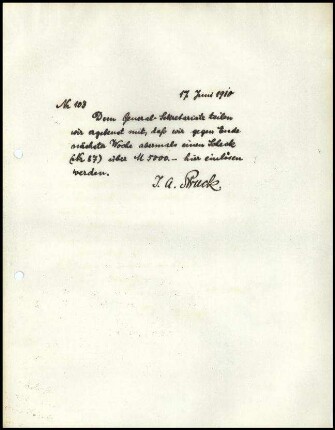 17 Juni 1910
No 103
Dem General-Sekretariate teilen
wir ergebenst mit, daß wir gegen Ende
nächster Woche abermals einen Scheck
(No 87) über M 5000.- hier einlösen
werden.
I. A. Struck